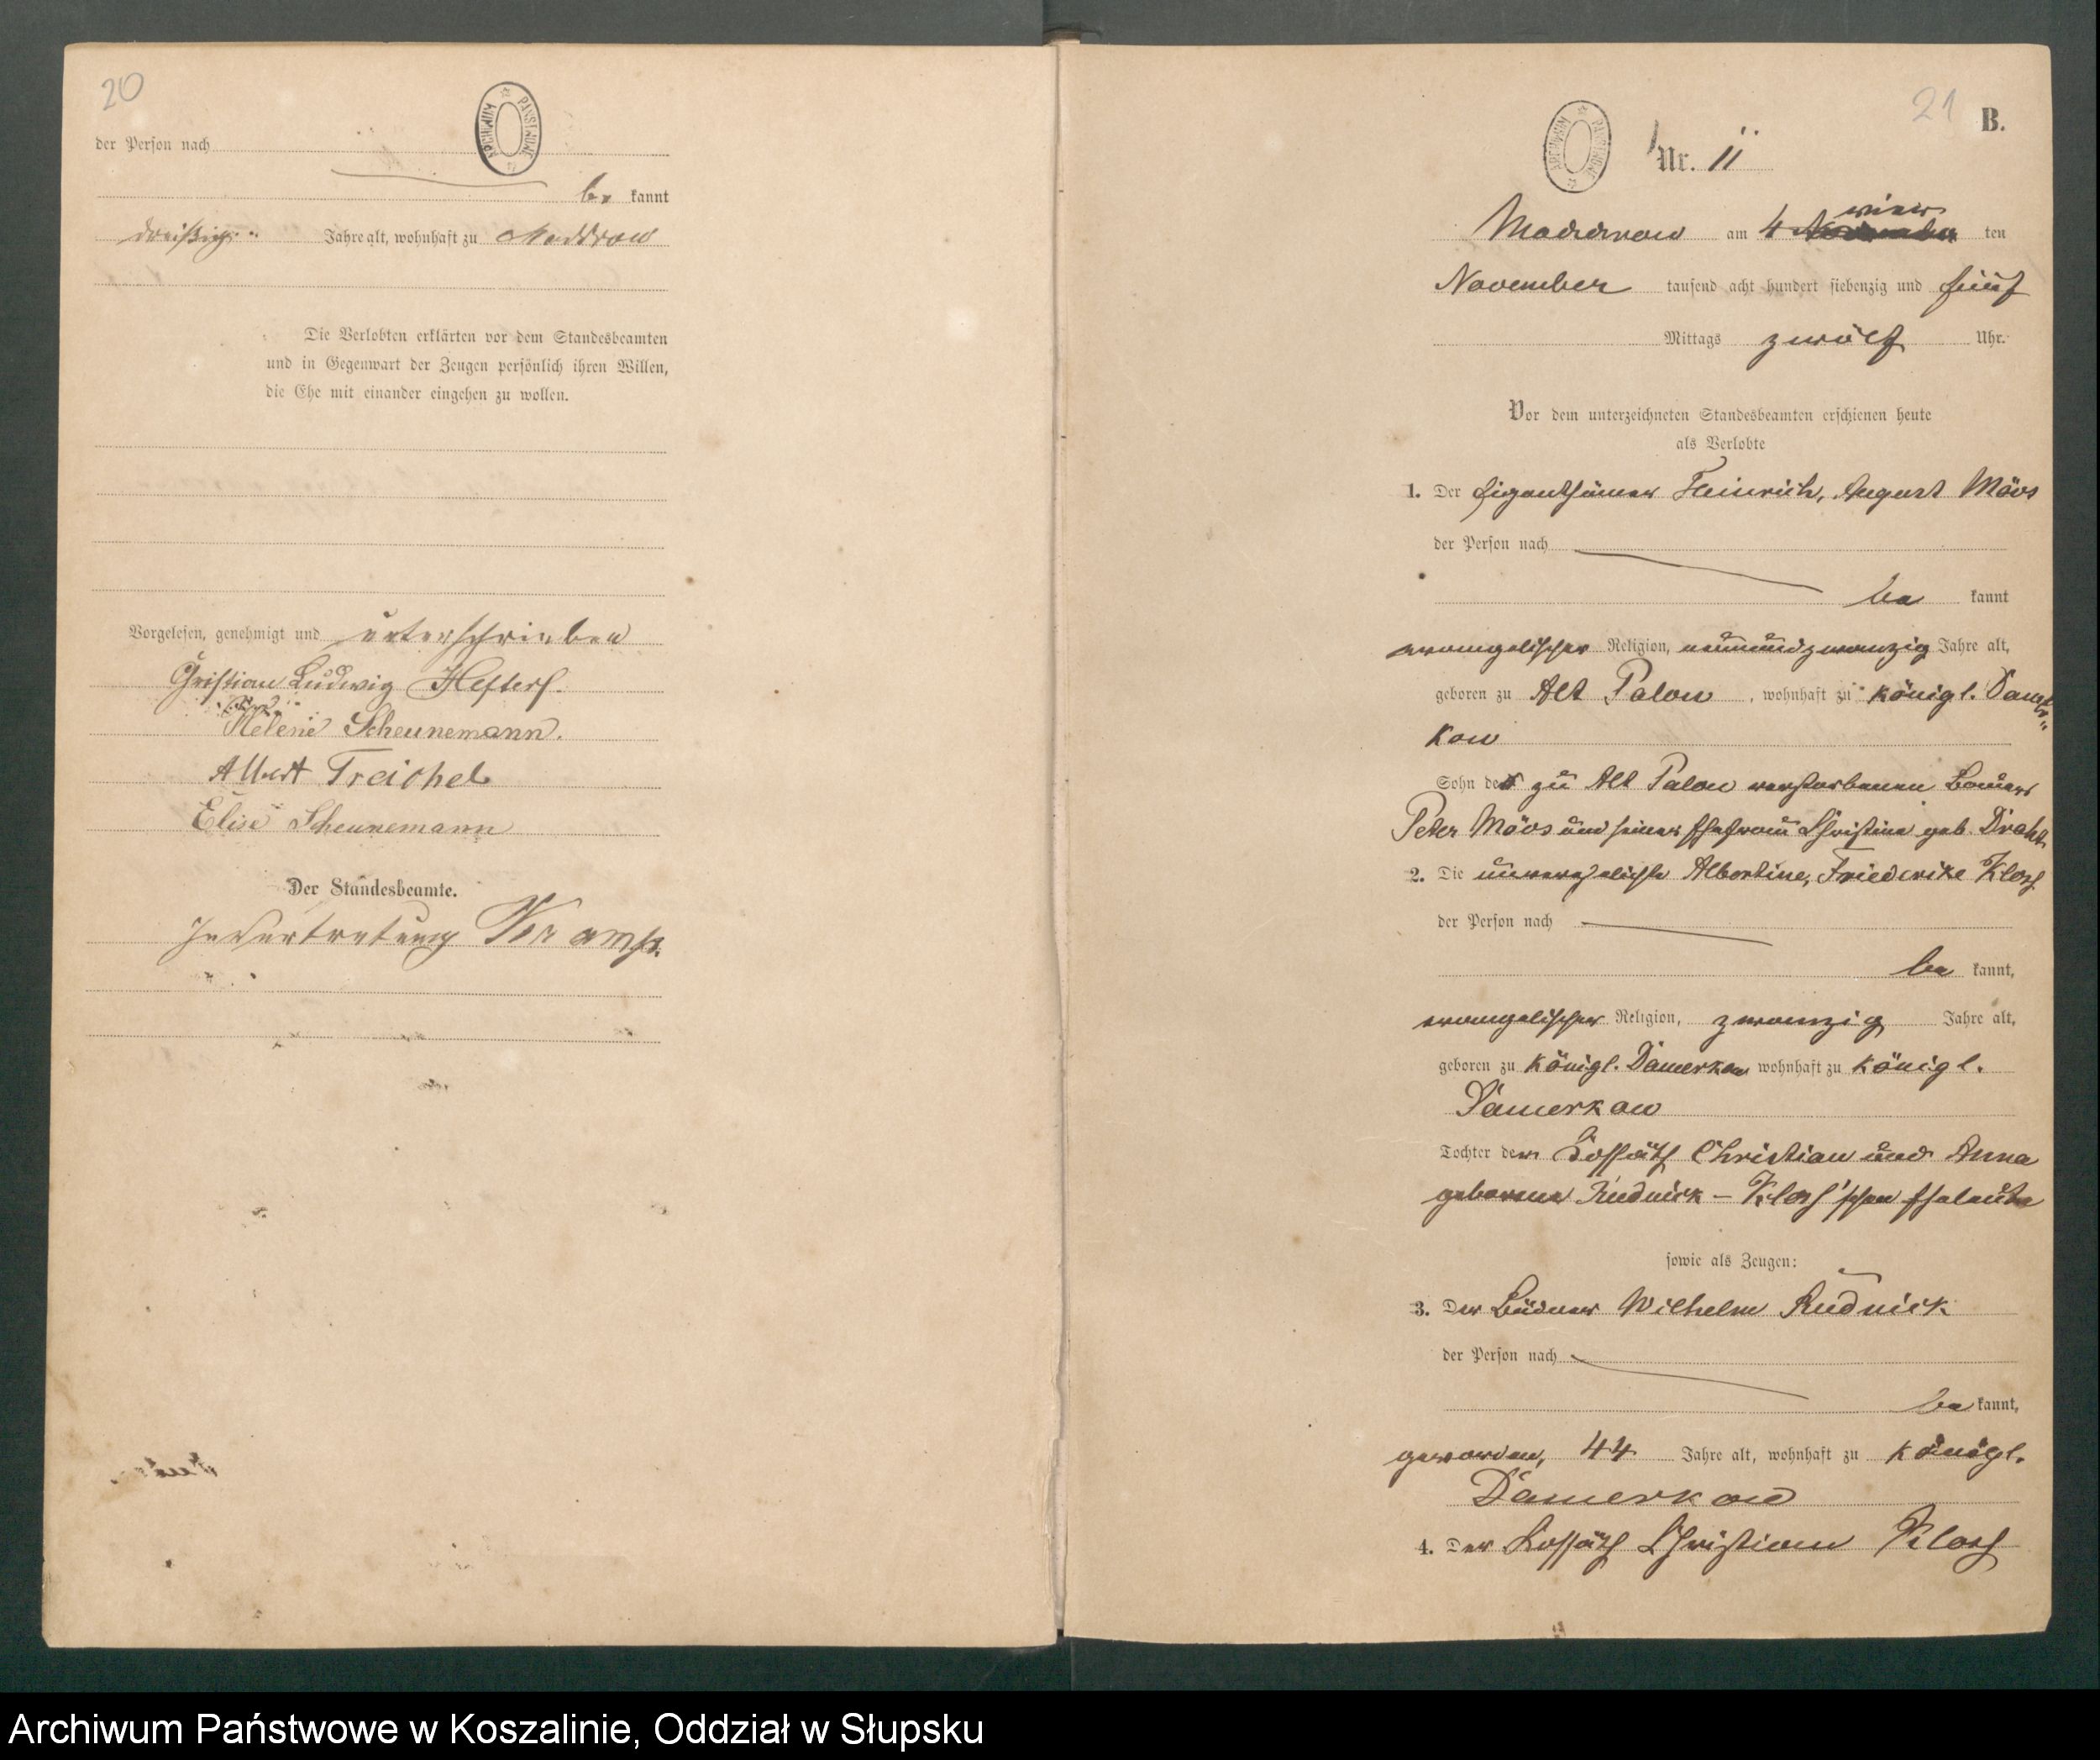 20
ARCHIWUM PAŃSTWOWE
der Person nach
be kannt
dreißig Jahre alt, wohnhaft zu Maddrow
Die Verlobten erklärten vor dem Standesbeamten
und in Gegenwart der Zeugen persönlich ihren Willen,
die Ehe mit einander eingehen zu wollen.
Vorgelesen, genehmigt und unterschrieben
Christian Ludwig
Helene Scheunemann.
Albert Treichel
Elise Scheunemann
Der Standesbeamte.
In Vertretung Kramp.
21
B.
ARCHIWUM PAŃSTWOWE
Nr. 11
vier
Maddrow am 4 November ten
November tausend acht hundert siebenzig und fünf
Mittags zwölf Uhr.
Vor dem unterzeichneten Standesbeamten erschienen heute
als Verlobte
1. Der Eigenthümer Heinrich, August Mövs
der Person nach
be kannt
evangelischer Religion, neunundzwanzig Jahre alt,
geboren zu Alt Palow, wohnhaft zu königl. Damer
kow
Sohn des zu Alt Palow verstorbenen Bauers
Peter Mövs und seiner Ehefrau Christine geb. Draht
2. Die unverehelichte Albertine, Friederike Kloss
der Person nach
be kannt,
evangelischer Religion, zwanzig Jahre alt,
geboren zu königl. Damerkow wohnhaft zu königl.
Damerkow
Tochter der Kossäth Christian und Anna
geborene Rudnick – Kloss'schen Eheleute
sowie als Zeugen:
3. Der Büdner Wilhelm Rudnick
der Person nach
be kannt,
geworden, 44 Jahre alt, wohnhaft zu königl.
Damerkow
4. Der Kossäth Christian Kloss
Archiwum Państwowe w Koszalinie, Oddział w Słupsku